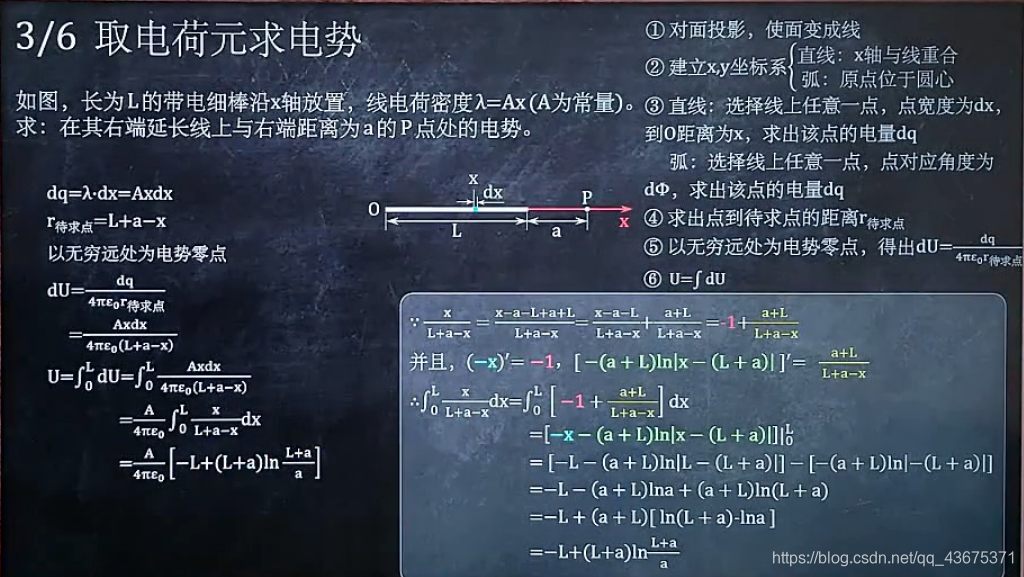 3/6 取电荷元求电势
如图，长为L的带电细棒沿x轴放置，线电荷密度λ=Ax(A为常量)。
求：在其右端延长线上与右端距离为a的P点处的电势。
dq=λ·dx=Axdx
r待求点=L+a−x
以无穷远处为电势零点
dU=dq/4πε₀r待求点
=Axdx/4πε₀(L+a−x)
U=∫₀ᴸdU=∫₀ᴸ Axdx/4πε₀(L+a−x)
=A/4πε₀ ∫₀ᴸ x/L+a−x dx
=A/4πε₀ [−L+(L+a)ln L+a/a]
x
dx
O
P
x
L
a
① 对面投影，使面变成线
② 建立x,y坐标系{直线：x轴与线重合
弧：原点位于圆心
③ 直线：选择线上任意一点，点宽度为dx，
到O距离为x，求出该点的电量dq
弧：选择线上任意一点，点对应角度为
dΦ，求出该点的电量dq
④ 求出点到待求点的距离r待求点
⑤ 以无穷远处为电势零点，得出dU=dq/4πε₀r待求点
⑥ U=∫dU
∵ x/L+a−x=x−a−L+a+L/L+a−x=x−a−L/L+a−x+a+L/L+a−x=-1+a+L/L+a−x
并且，(−x)′= −1，[ −(a + L)ln|x − (L + a)| ]′= a+L/L+a−x
∴∫₀ᴸ x/L+a−x dx=∫₀ᴸ [ −1 + a+L/L+a−x ] dx
=[−x − (a + L)ln|x − (L + a)|]|₀ᴸ
= [−L − (a + L)ln|L − (L + a)|] − [−(a + L)ln|−(L + a)|]
=−L − (a + L)lna + (a + L)ln(L + a)
=−L + (a + L)[ ln(L + a)-lna ]
=−L+(L+a)ln L+a/a
https://blog.csdn.net/qq_43675371